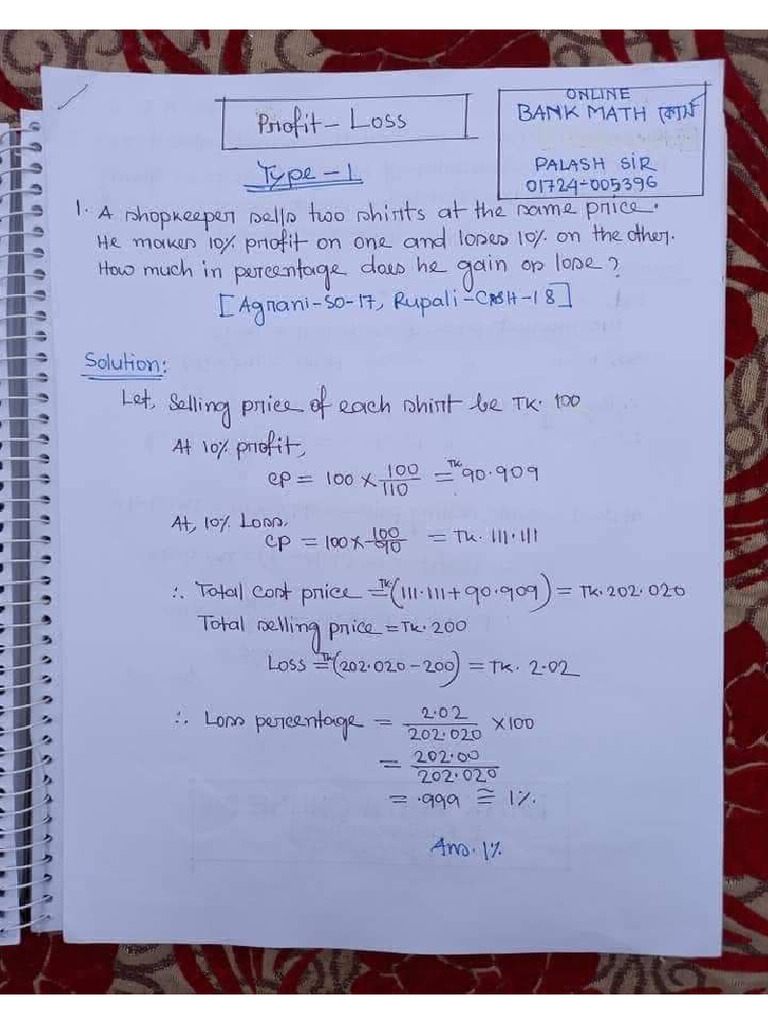 Profit - Loss
ONLINE
BANK MATH কোর্স
PALASH SIR
01724-005396
Type - 1
1. A shopkeeper sells two shirts at the same price.
He makes 10% profit on one and loses 10% on the other.
How much in percentage does he gain or lose?
[Agrani-SO-17, Rupali-CASH-18]
Solution:
Let, Selling price of each shirt be TK. 100
At 10% profit,
CP = 100 × 100/110 = TK 90.909
At, 10% Loss,
CP = 100 × 100/90 = TK. 111.111
∴ Total cost price = TK (111.111 + 90.909) = TK. 202.020
Total selling price = TK. 200
Loss = TK (202.020 - 200) = TK. 2.02
∴ Loss percentage = 2.02/202.020 × 100
= 202.00/202.020
= .999 ≅ 1%.
Ans. 1%